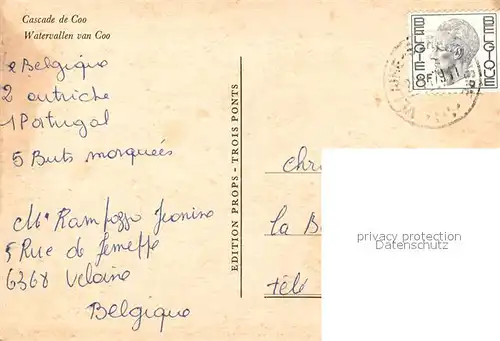 Cascade de Coo
Watervallen van Coo
2 Belgique
2 autriche
1 Portugal
5 Buts marqués
Rampozzo Jeanine
5 Rue de Jemeppe
6368 Velaine
Belgique
EDITION PROPS - TROIS PONTS
BELGIE BELGIQUE
8F
la
télé
privacy protection
Datenschutz